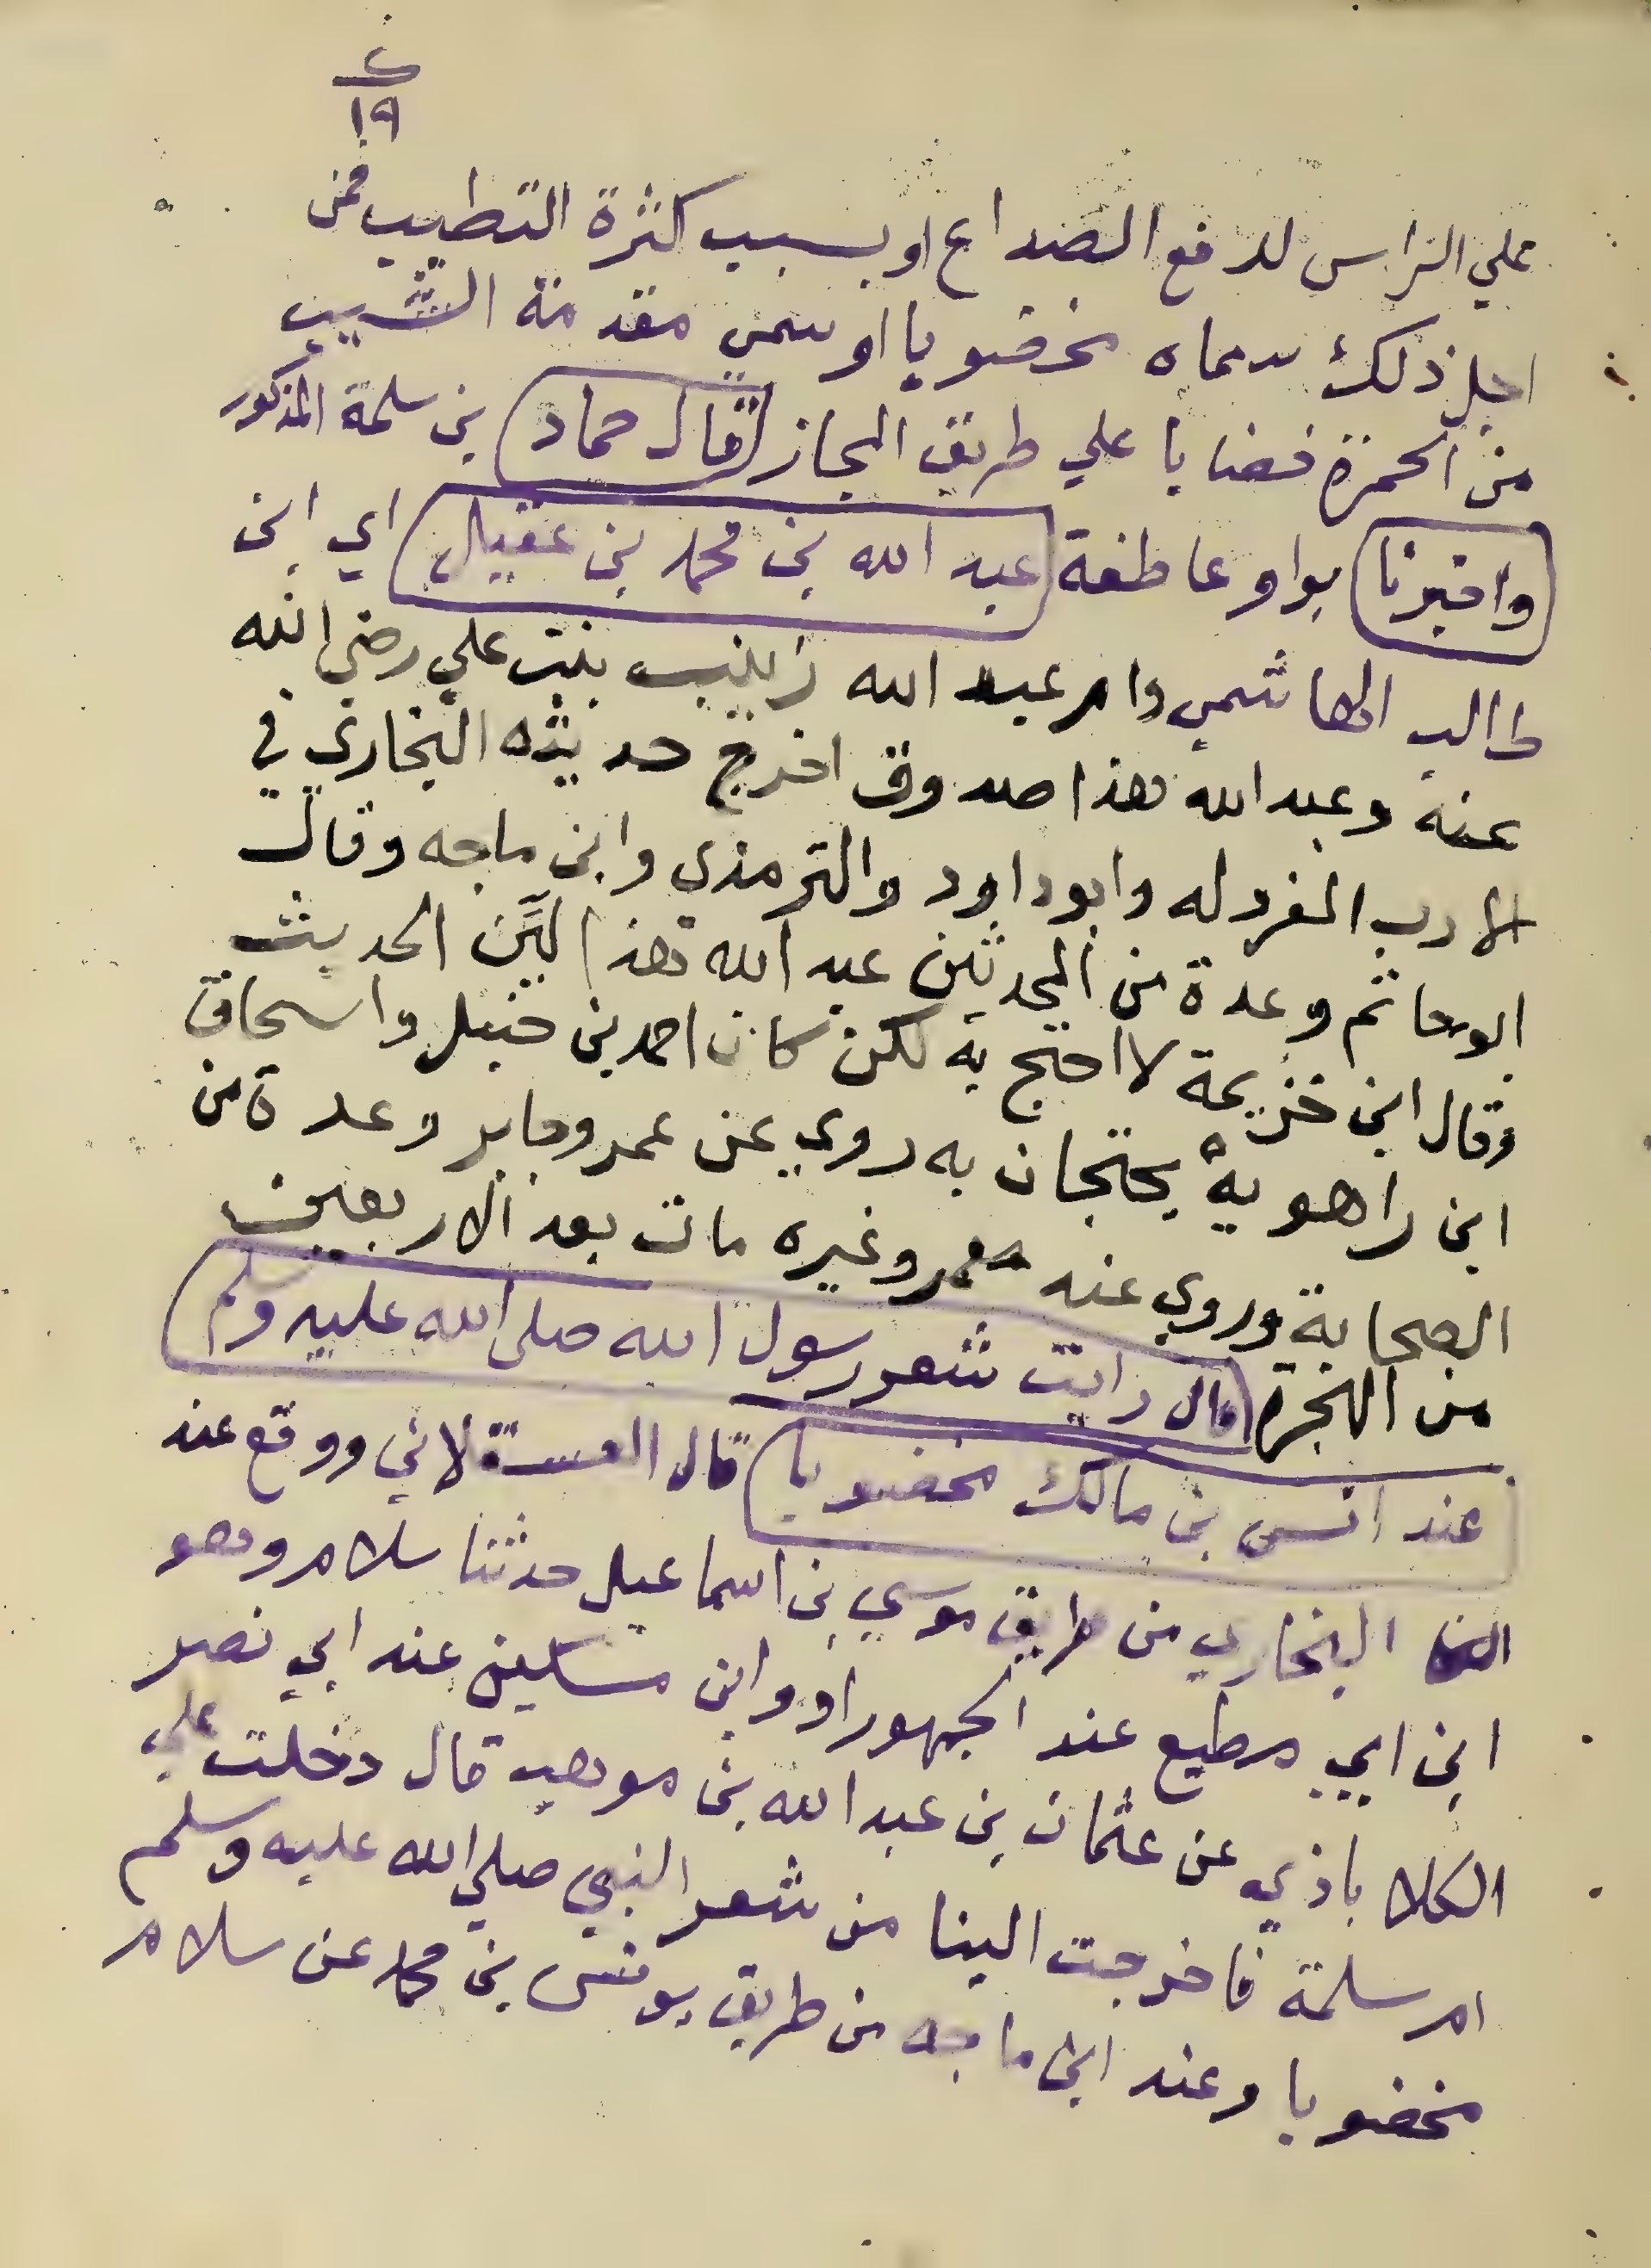 ع
١٩
علي الراس لدفع الصداع او بسبب كثرة التطيب فمن
اجل ذلك سماه مخضوبا او سمي مقدمة الشيب
من الحمرة خضابا علي طريق المجاز (قال حماد) بن سلمة المذكور
(واخبرنا) بواو عاطفة (عبد الله بن محمد بن عقيل) اي ابن
طالب الهاشمي وام عبد الله زينب بنت علي رضي الله
عنه وعبد الله هذا صدوق اخرج حديثه البخاري في
الادب المفرد له وابو داود والترمذي وابن ماجه وقال
ابو حاتم وعدة من المحدثين عبد الله هذا ليّن الحديث
وقال ابن خزيمة لا احتج به لكن كان احمد بن حنبل واسحاق
ابن راهويه يحتجان به روي عن عمر وجابر وعدة من
الصحابة وروي عنه معمر وغيره مات بعد الاربعين
من الهجرة (قال رايت شعر رسول الله صلى الله عليه وسلم
عند انس بن مالك مخضوبا) قال القسطلاني ووقع عند
البخاري من طريق موسي بن اسماعيل حدثنا سلام وهو
ابن ابي مطيع عند الجمهور او وابن مسكين عند ابي نصر
الكلاباذي عن عثمان بن عبد الله بن موهب قال دخلت علي
ام سلمة فاخرجت الينا من شعر النبي صلي الله عليه وسلم
مخضوبا وعند ابن ماجه من طريق يونس بن محمد عن سلام